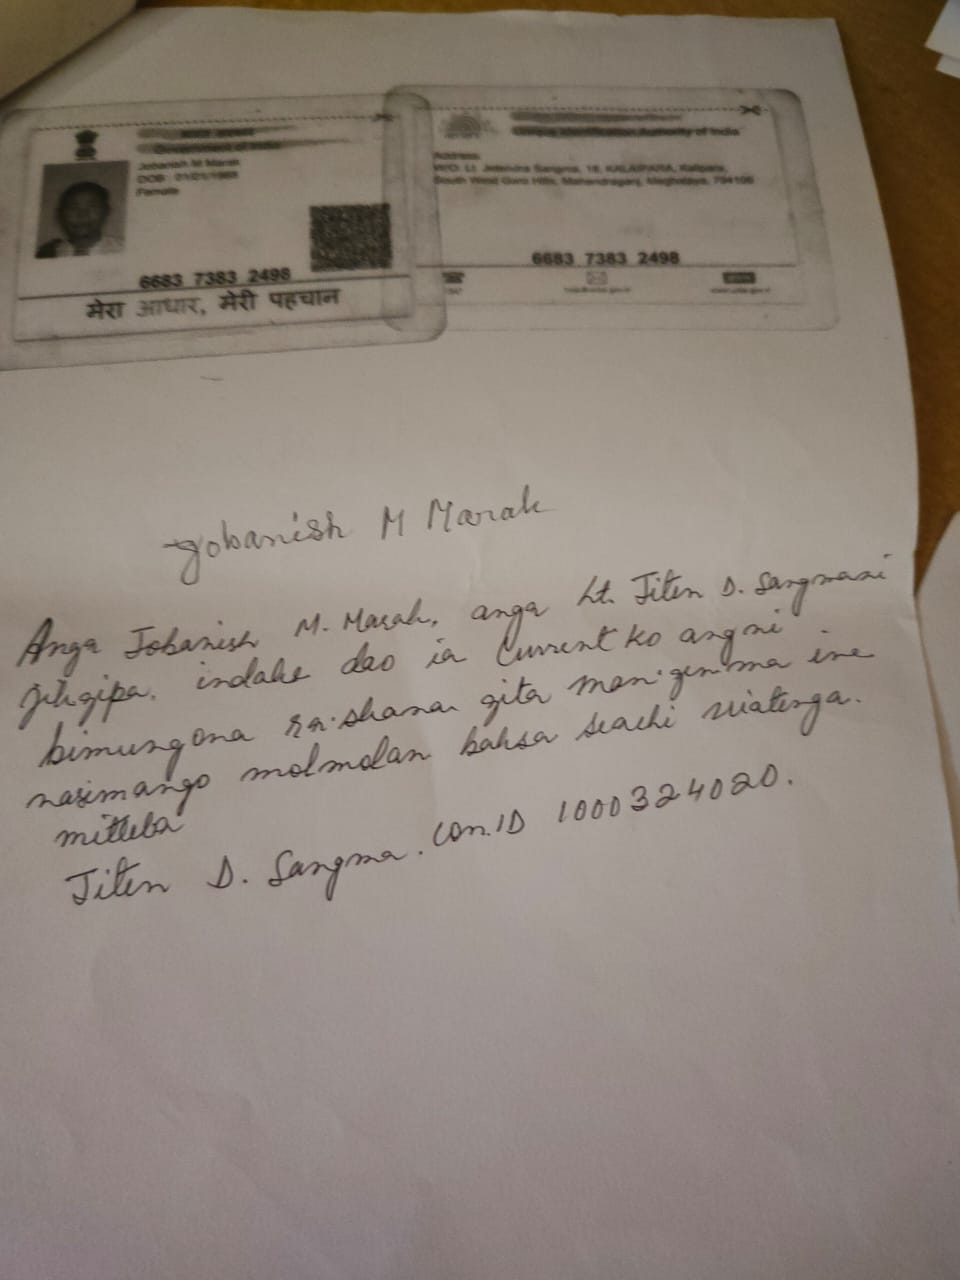 Government of India
Jobanish M Marak
Female
6683 7383 2498
मेरा आधार, मेरी पहचान
Unique Identification Authority of India
Address:
South West Garo Hills, Mahendraganj, Meghalaya, 794106
6683 7383 2498
Jobanish M Marak
Anga Jobanish M. Marak, anga Lt. Jiten D. Sangmani
jikgipa. indake dao ia Current ko angni
bimungona ra·shana gita man·genma ine
nasimango molmolan baksa seachi niatenga.
mitelba
Jiten D. Sangma. Con.ID 1000324020.